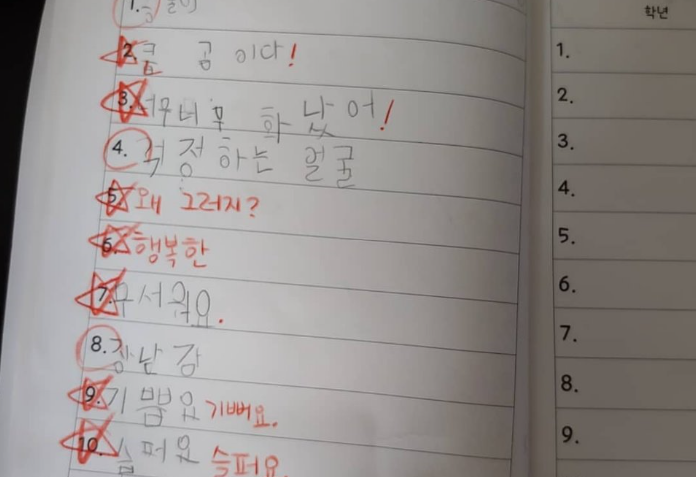 학년
1. 놀이
2. 쿰 곰 이다!
3. 너무 화 났어!
4. 걱정하는 얼굴
5. 왜 그러지?
6. 행복한
7. 무서워요.
8. 장난감
9. 기뿝요 기뻐요.
10. 슬퍼요 슬퍼요.
1.
2.
3.
4.
5.
6.
7.
8.
9.